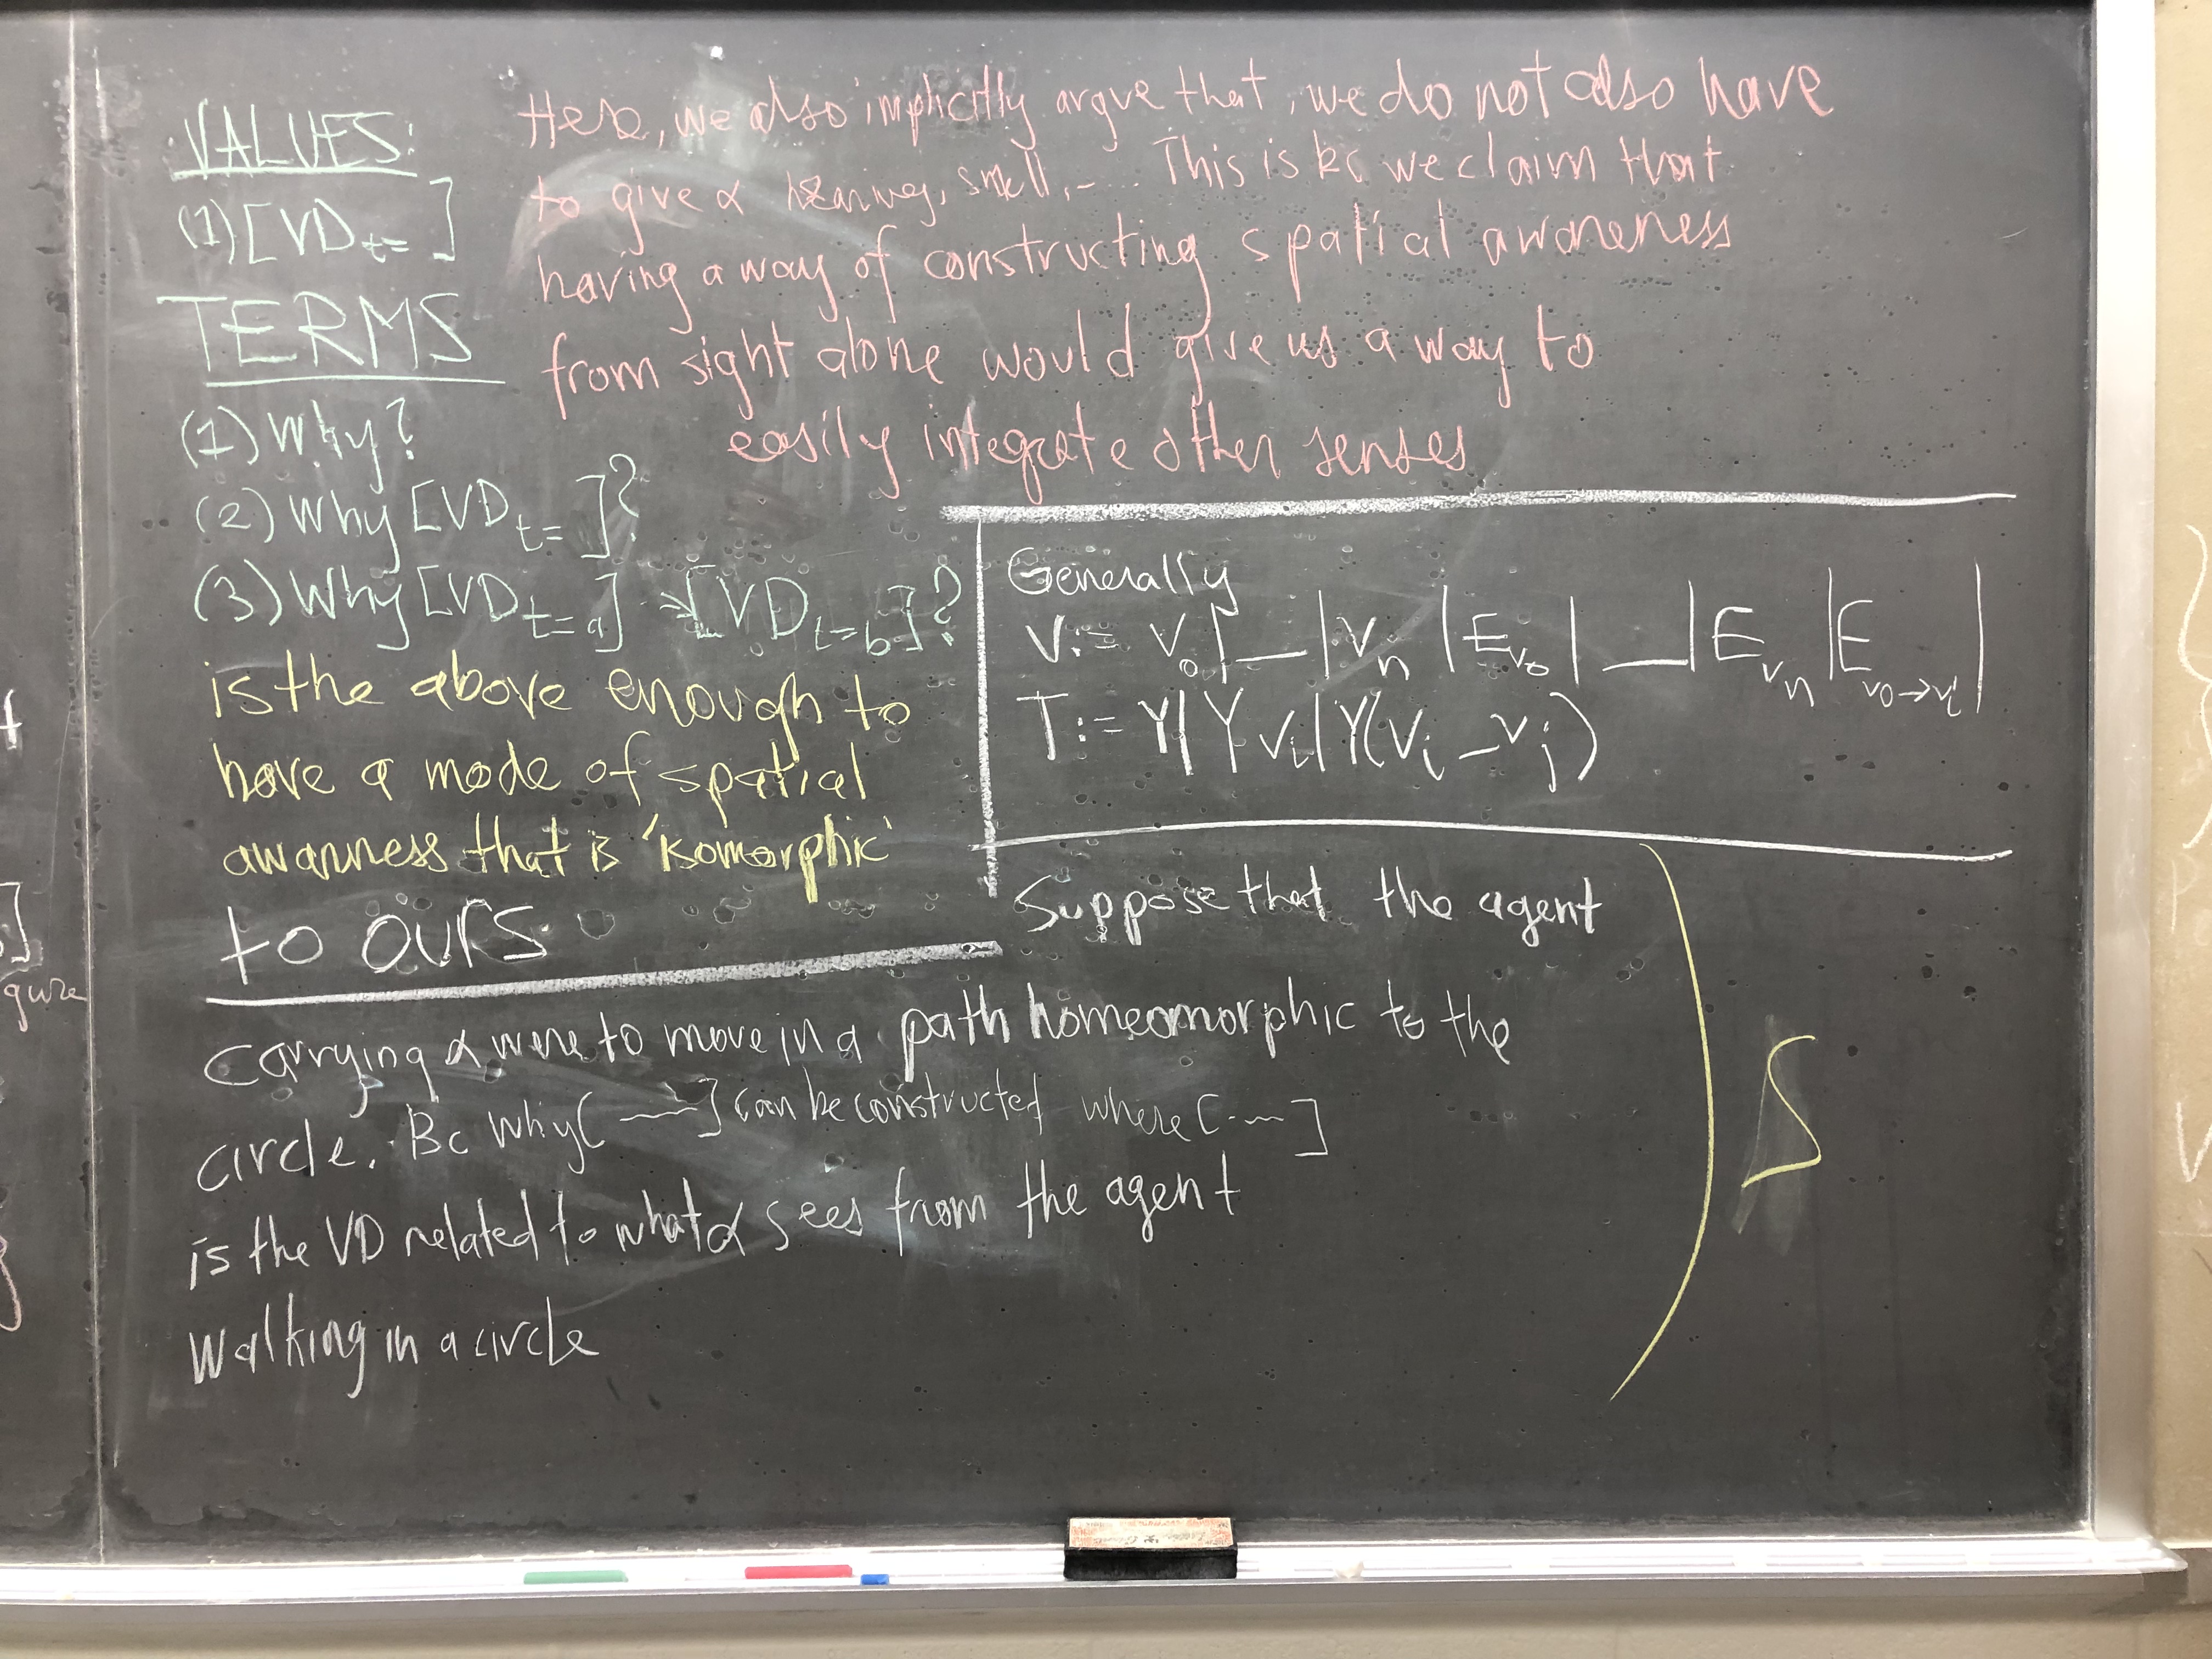 VALUES:
(1) [VD t= ]
TERMS
(1) Why?
(2) Why [VD t= ]?
(3) Why [VD t=a] → [VD t=b]?
is the above enough to
have a mode of spatial
awarness that is 'isomorphic'
to ours
Here, we also implicitly argue that, we do not also have
to give α hearing, smell, - ... This is bc we claim that
having a way of constructing spatial awareness
from sight alone would give us a way to
easily integrate other senses
Generally
V := v₀ | _ | v_n | E_v₀ | _ | E_v_n | E_v₀→v_i |
T := Y | Y v_i | Y(v_i _ v_j)
Suppose that the agent
carrying α were to move in a path homeomorphic to the
circle. Bc Why [ — ] can be constructed where [ ... ]
is the VD related to what α sees from the agent
walking in a circle
S
gure